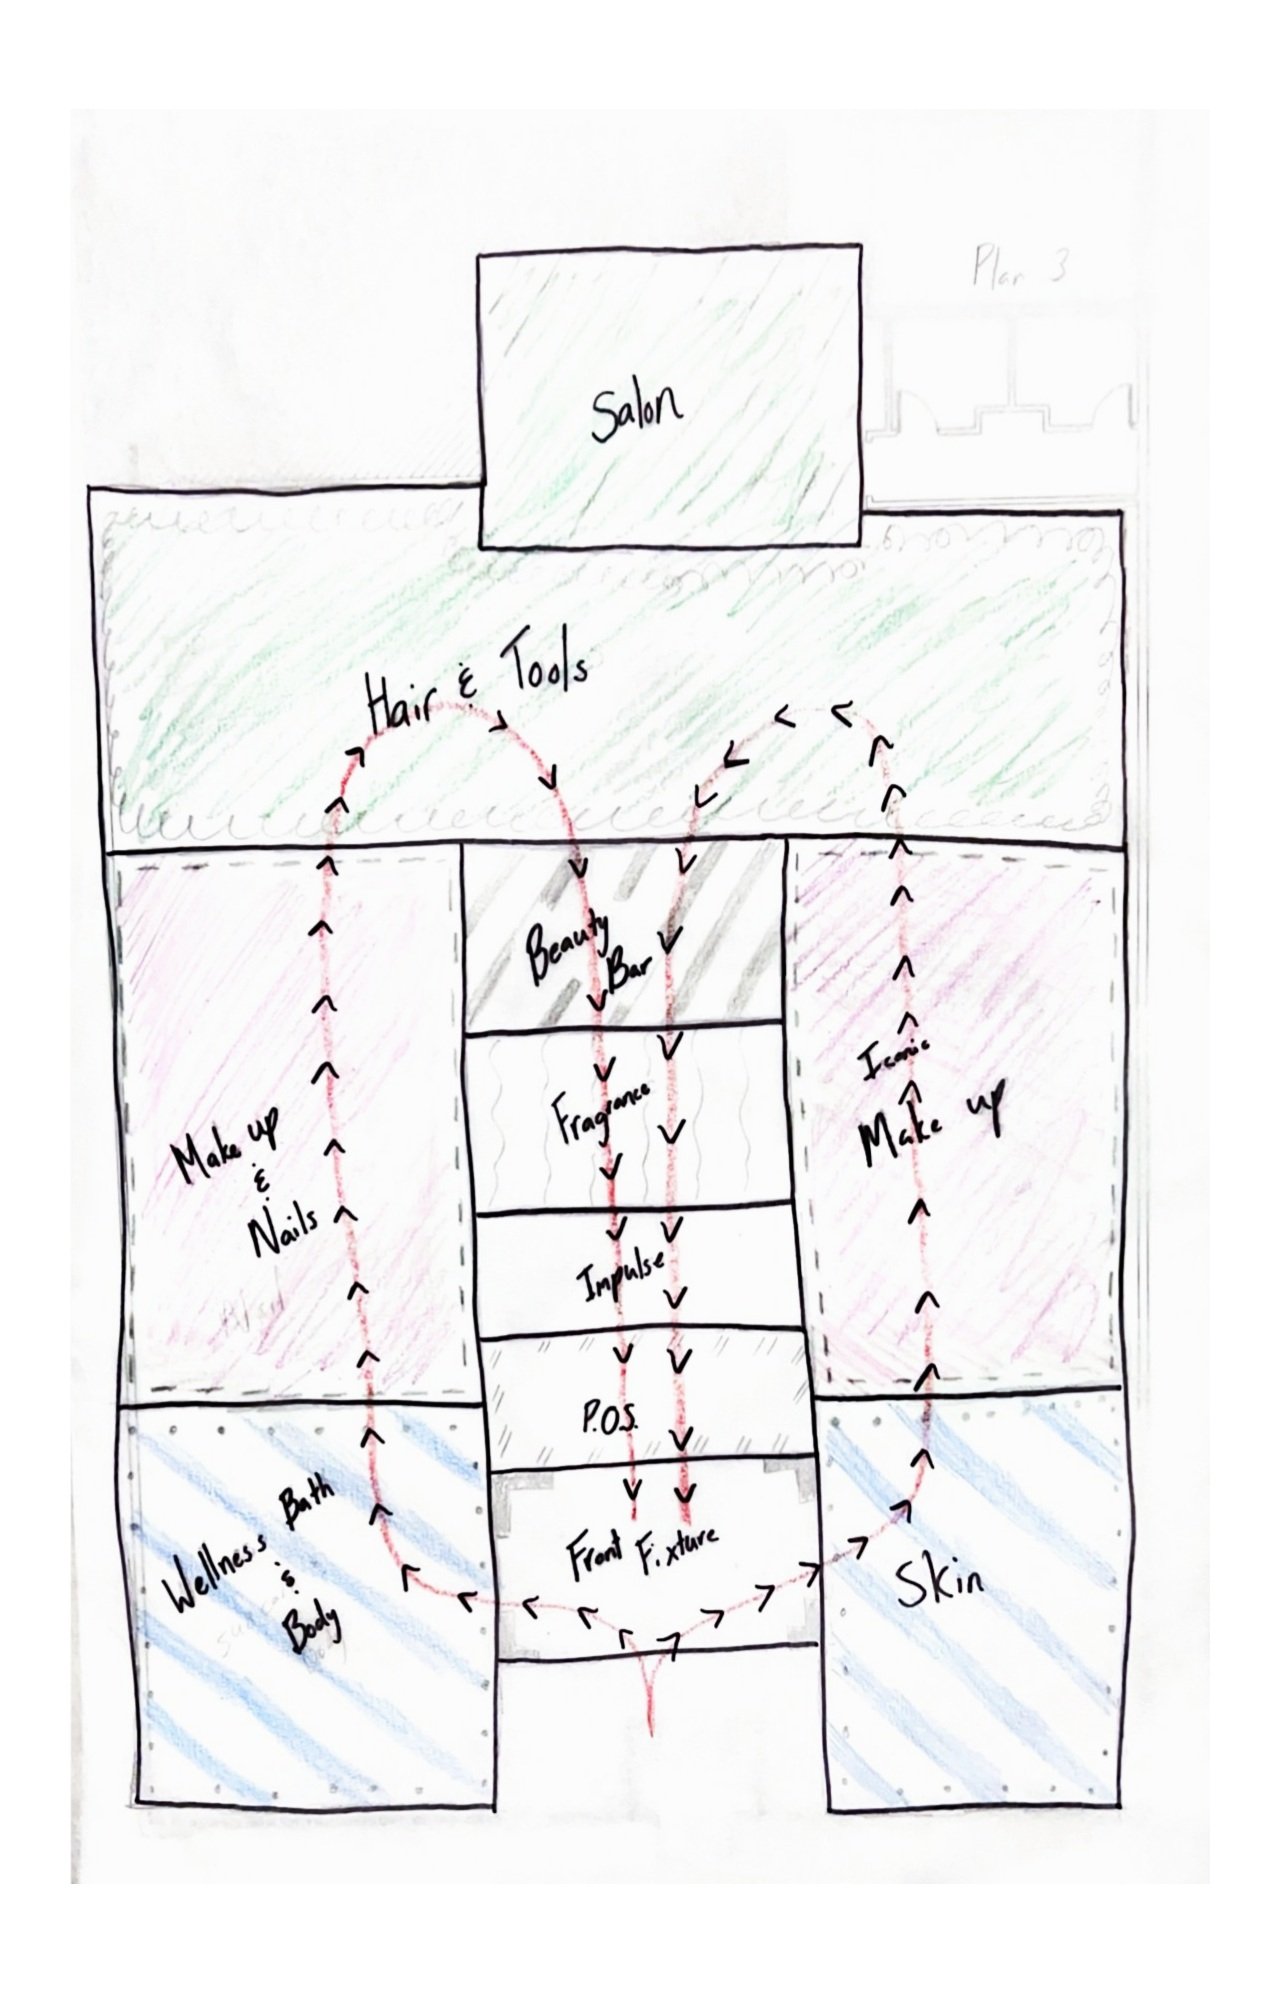 Plan 3
Salon
Hair & Tools
Beauty
Bar
Fragrance
Iconic
Make up
Make up
&
Nails
Impulse
P.O.S.
Wellness Bath
&
Body
Front Fixture
Skin